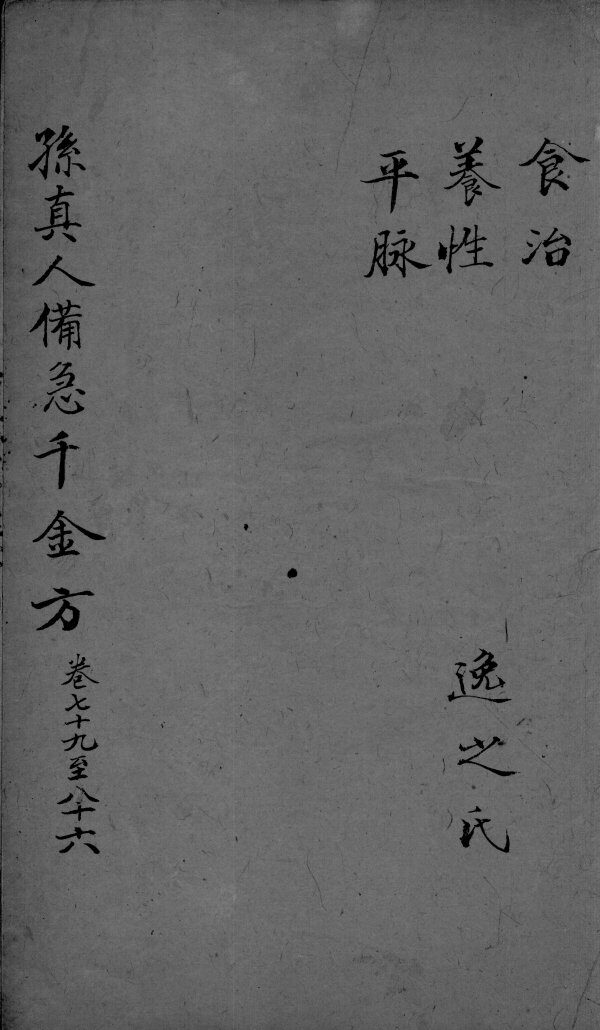 食治
養性
平脉
逸之氏
孫真人備急千金方
卷七十九至八十六